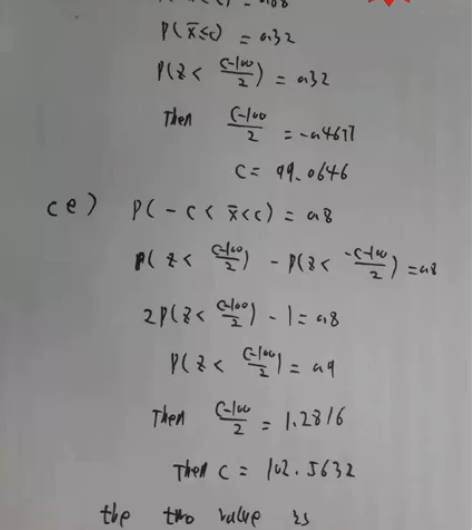 P(x̄≤c) = 0.32
P(z < (c-100)/2) = 0.32
Then (c-100)/2 = -0.4677
c = 99.0646
(e) P(-c < x̄ < c) = 0.8
P(z < (c-100)/2) - P(z < (-c-100)/2) = 0.8
2P(z < (c-100)/2) - 1 = 0.8
P(z < (c-100)/2) = 0.9
Then (c-100)/2 = 1.2816
Then c = 102.5632
the two value is